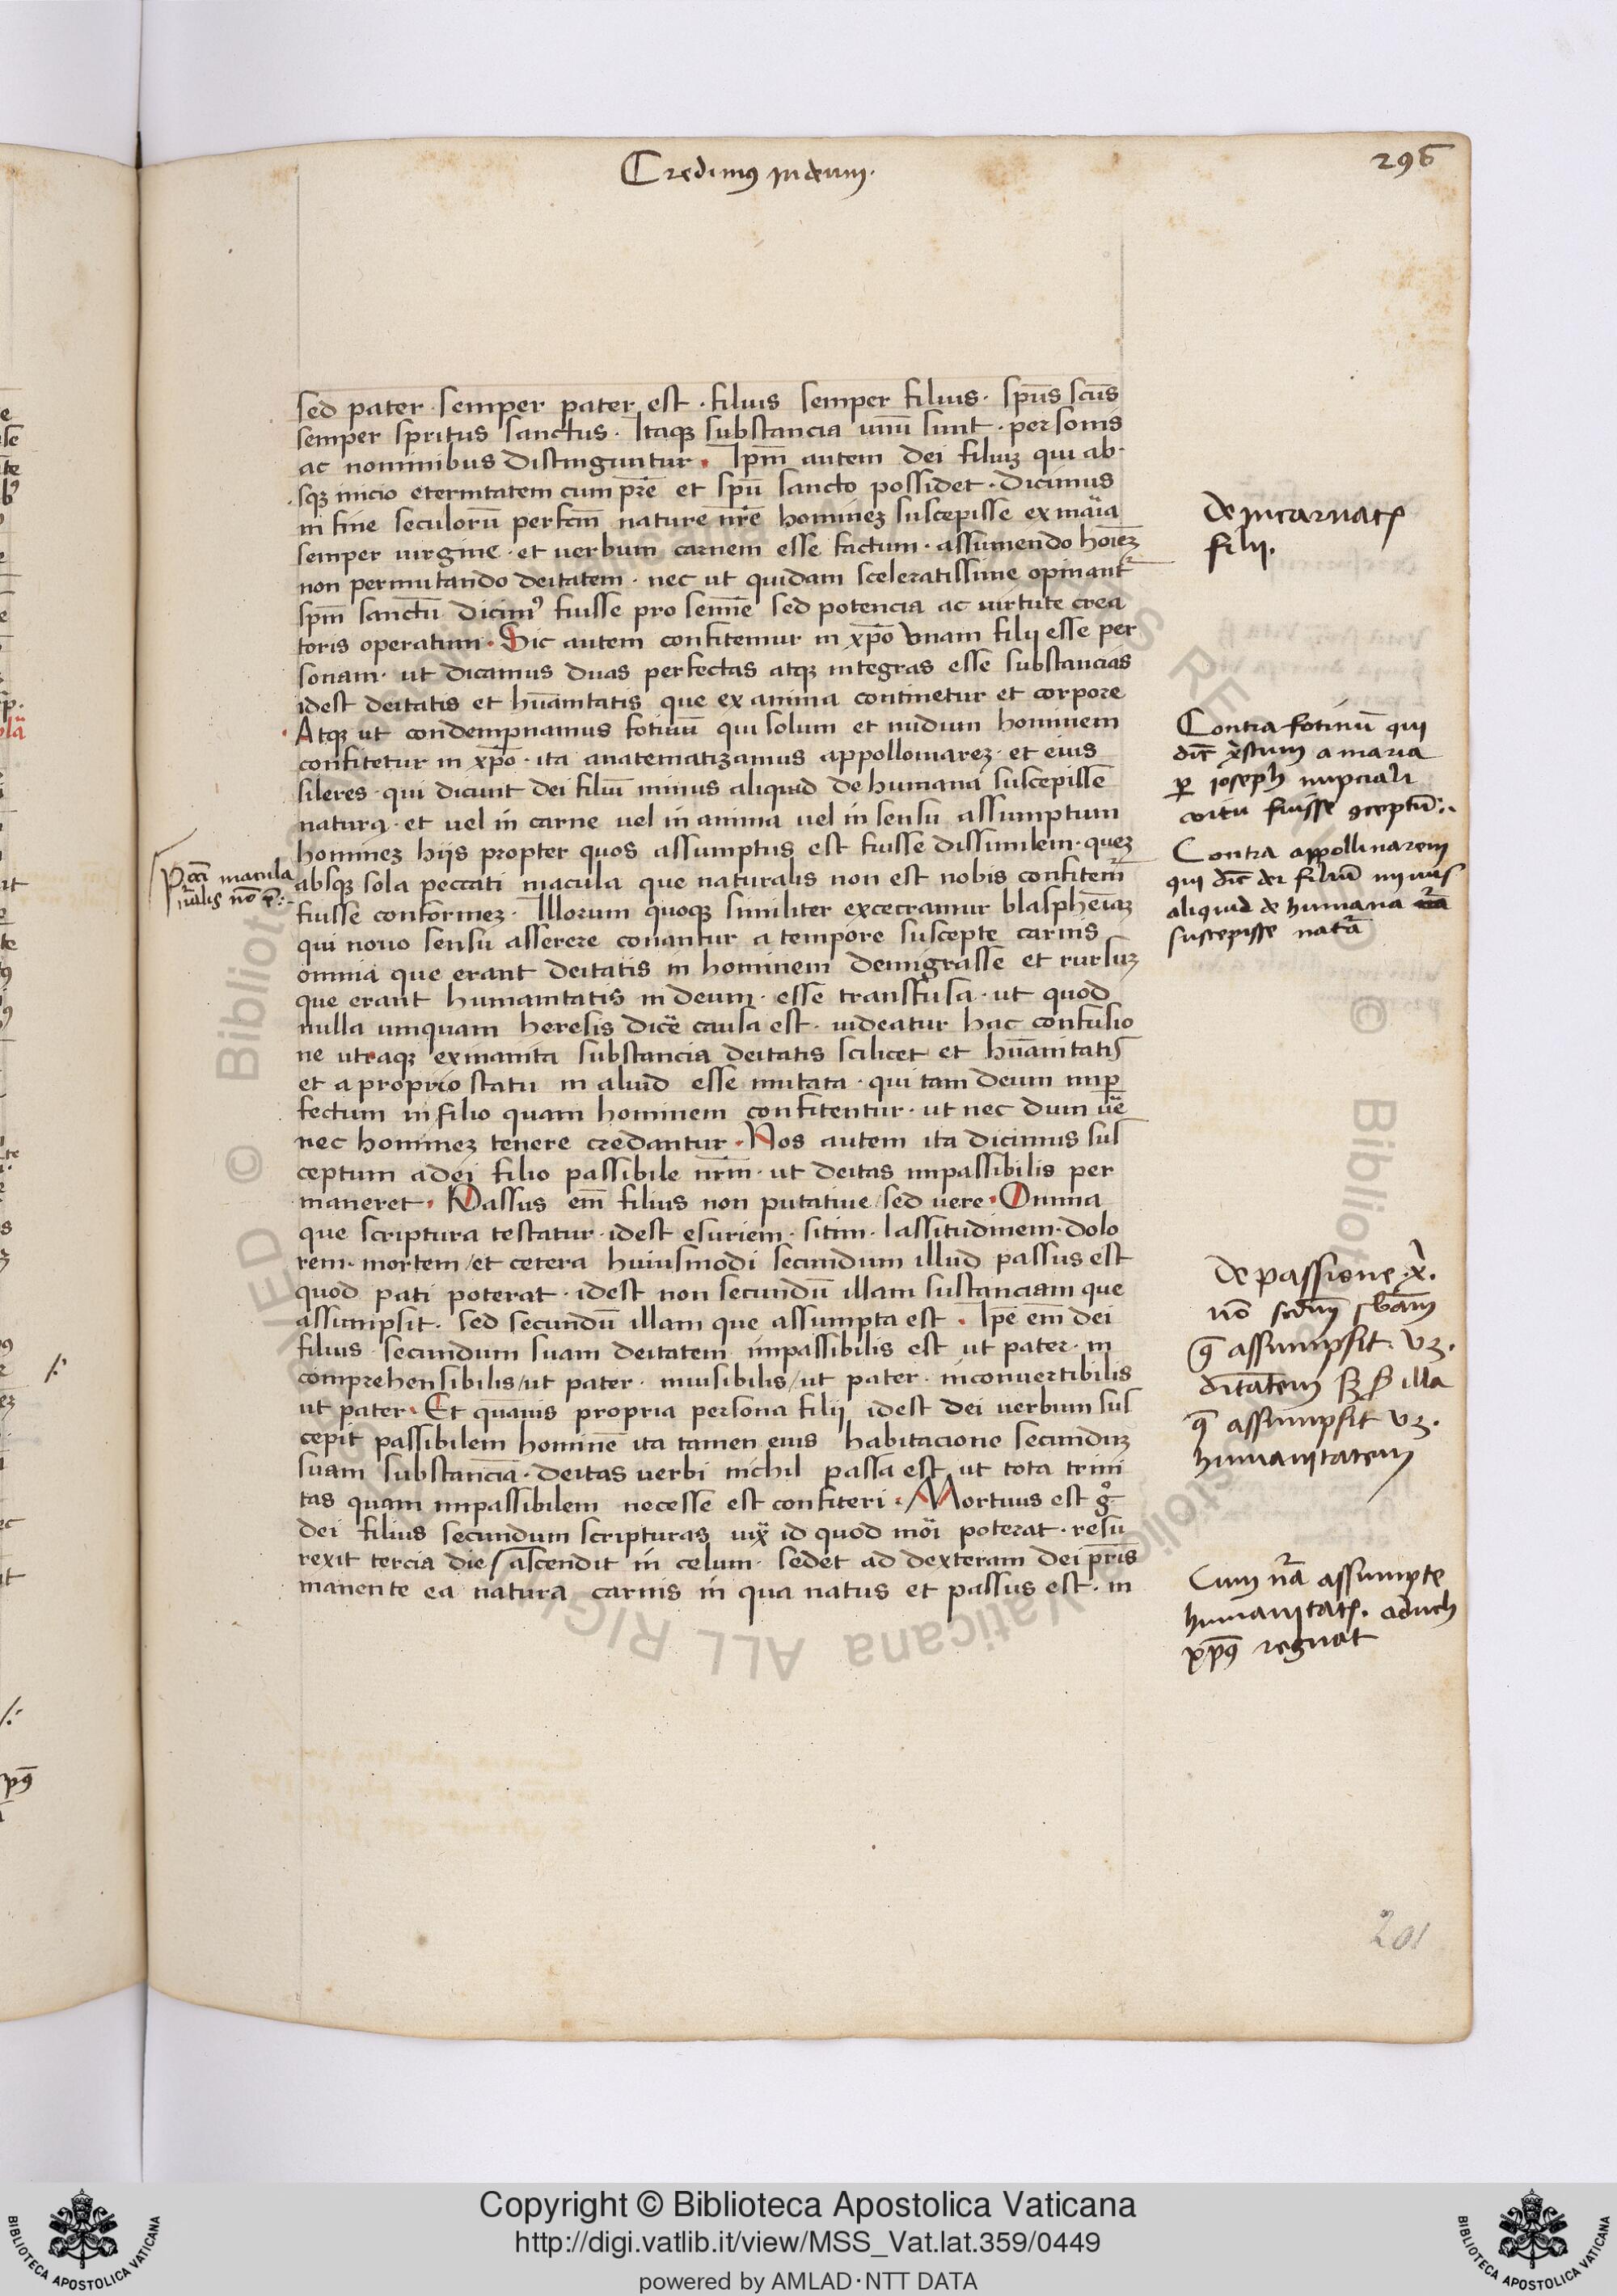 Credimꝰ in deum.
296
sed pater semper pater est · filius semper filius · sp̄us sc̄us
semper spritus sanctus · Itaqꝫ substancia unū sunt · personis
ac nominibus distinguntur · Ip̄m autem dei filiuꝫ qui ab·
sqꝫ inicio eternitatem cum pr̄e et sp̄u sancto possidet · dicimus
in fine seculorū perfcm̄ nature nr̄e homineꝫ suscepisse ex maïa
semper uirgine · et uerbum carnem esse factum · assumendo hoīeꝫ
non permutando deitatem · nec ut quidam sceleratissime opinant᷑
sp̄m sanctū dicimꝰ fuisse pro semīe sed potencia ac uirtute crea
toris operatum · Sic autem confitemur in xp̄o vnam filij esse per
sonam · ut dicamus duas perfectas atqꝫ integras esse substancias
idest deitatis et hūanitatis que ex anima continetur et corpore
Atqꝫ ut condempnamus fotinū qui solum et nudum hominem
confitetur in xp̄o · ita anatematizamus appollonareꝫ · et eius
sileres · qui dicunt dei filiū minus aliquid de humana suscepisse
natura · et uel in carne uel in anima uel in sensu assumptum
homineꝫ hijs propter quos assumptus est fuisse dissimilem · queꝫ
absqꝫ sola peccati macula que naturalis non est nobis confitem᷑
fuisse conformeꝫ · Illorum quoqꝫ similiter excecramur blasphemiaꝫ
qui nouo sensu asserere conantur a tempore suscepte carnis
omnia que erant deitatis in hominem demigrasse et rursuꝫ
que erant humanitatis in deum · esse transfusa · ut quod
nulla umquam heresis dic̄e causa est · uideatur hac confusio
ne utraqꝫ exinanita substancia deitatis scilicet et hūanitatis
et a proprio statu in aliud esse mutata · qui tam deum imꝑ
fectum in filio quam hominem confitentur · ut nec dum ūe
nec homineꝫ tenere credantur · Nos autem ita dicimus sus
ceptum a dei filio passibile nr̄m · ut deitas impassibilis per
maneret · Passus em̄ filius non putatiue / sed vere · Omnia
que scriptura testatur · idest esuriem · sitim · lassitudinem · dolo
rem · mortem / et cetera huiusmodi secundum illud passus est
quod pati poterat · idest non secundū illam sustanciam que
assumpsit · sed secundū illam que assumpta est · Ip̄e em̄ dei
filius secundum suam deitatem impassibilis est ut pater · in
comprehensibilis / ut pater · inuisibilis / ut pater · inconuertibilis
ut pater · Et quauis propria persona filij idest dei uerbum sus
cepit passibilem hominē ita tamen eius habitacione secunduꝫ
suam substanciā · deitas uerbi nichil passa est ut tota trini
tas quam impassibilem necesse est confiteri · Mortuus est gͦ
dei filius secundum scripturas iuẍ id quod möi poterat · resu
rexit tercia die / ascendit in celum · sedet ad dexteram dei pr̄is
manente ea natura carnis in qua natus et passus est · in
Pcc̄i macula
nr̄alis nō ē:·
de incarnatꝭ
filij.
Contra fotinū qui
dic̄t xr̄istum a maria
ꝑ ioseph nupciali
coitu fuisse ꝯceptū:·
Contra appollinarem
qui dic̄t dei filiū minus
aliquid de humana
suscepisse natā
de passione x̄.
nō scdm̄ sb̄am
q̄ assumpsit vꝫ.
ditatem sꝫ illa
q̄ assumpsit vꝫ.
humanitatem
Cum nr̄a assumpte
humanitatꝭ. adhuch
xp̄ꝰ regnat
201
Copyright © Biblioteca Apostolica Vaticana
http://digi.vatlib.it/view/MSS_Vat.lat.359/0449
powered by AMLAD·NTT DATA
BIBLIOTECA APOSTOLICA VATICANA
BIBLIOTECA APOSTOLICA VATICANA